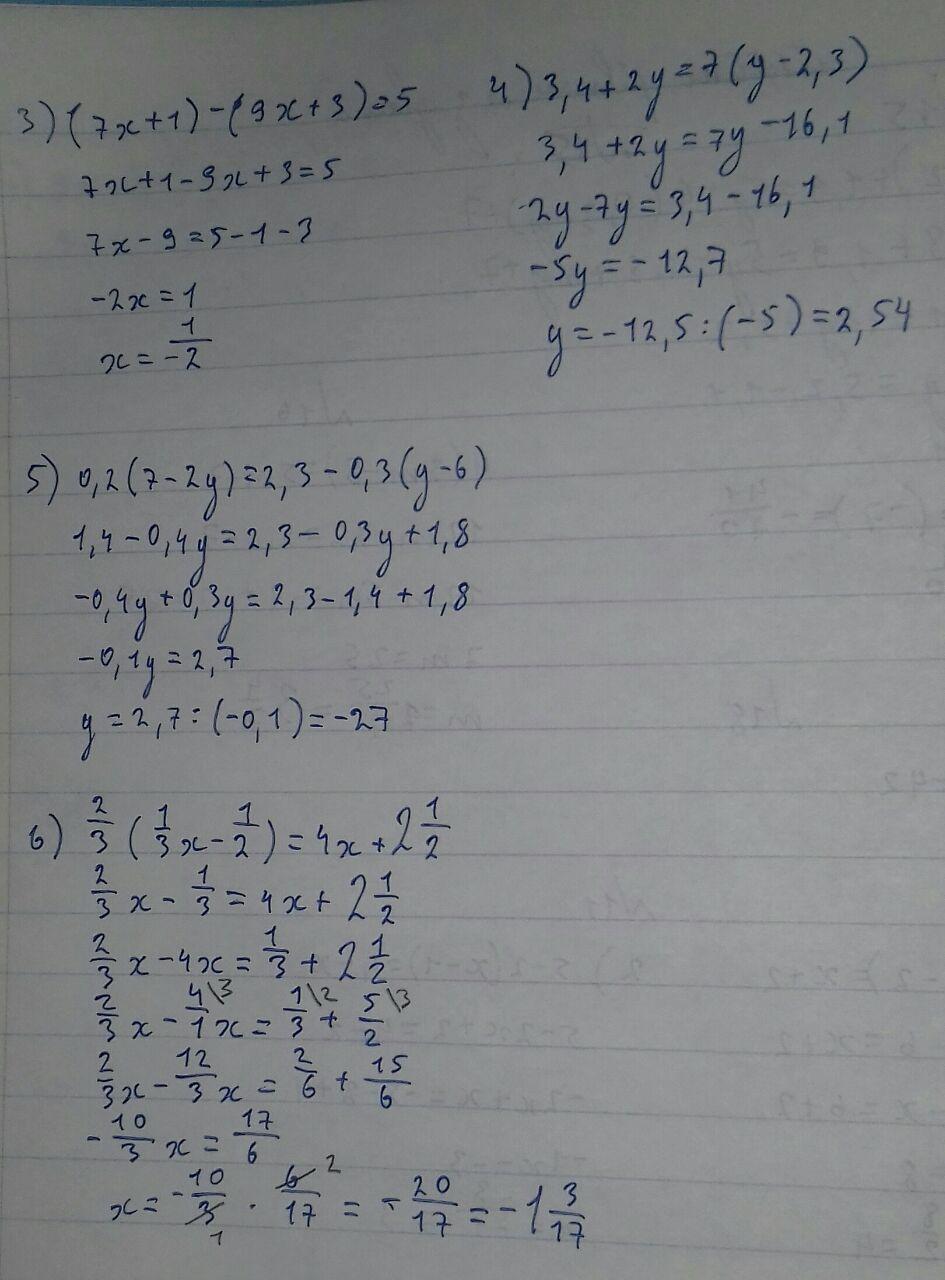 3) (7x+1)-(9x+3)=5
7x+1-9x+3=5
7x-9=5-1-3
-2x=1
x=-1/2
4) 3,4+2y=7(y-2,3)
3,4+2y=7y-16,1
2y-7y=3,4-16,1
-5y=-12,7
y=-12,5:(-5)=2,54
5) 0,2(7-2y)=2,3-0,3(y-6)
1,4-0,4y=2,3-0,3y+1,8
-0,4y+0,3y=2,3-1,4+1,8
-0,1y=2,7
y=2,7:(-0,1)=-27
6) 2/3(1/3x-1/2)=4x+2 1/2
2/3x-1/3=4x+2 1/2
2/3x-4x=1/3+2 1/2
2/3x-4/1\3x=1/3\2+5/2\3
2/3x-12/3x=2/6+15/6
-10/3x=17/6
x=-10/3 1·6 2/17=-20/17=-1 3/17